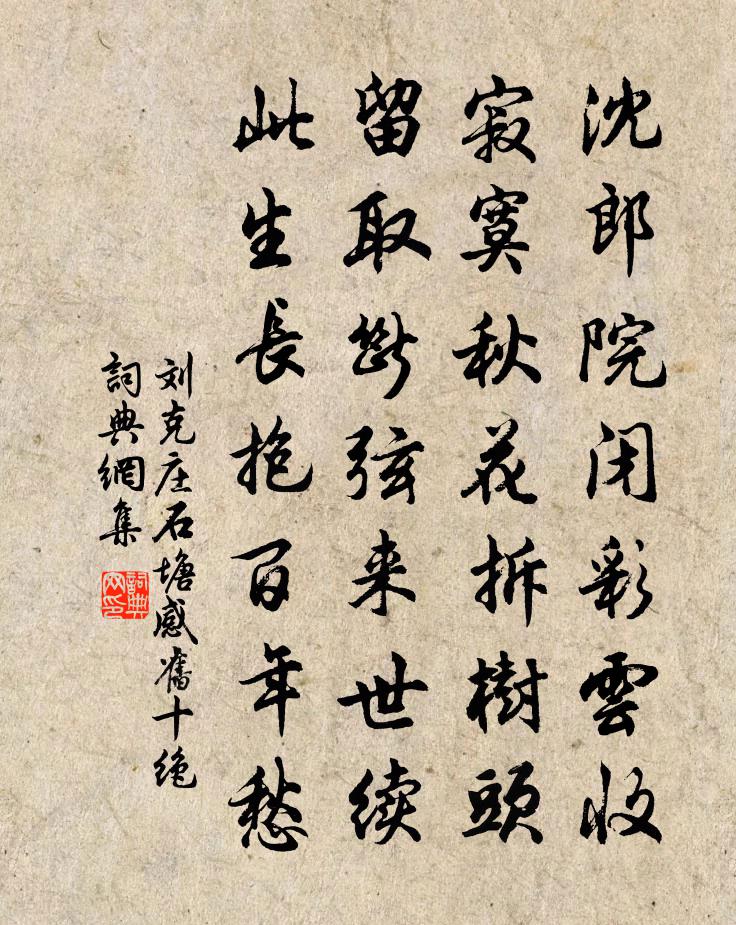 沈郎院闭彩雲收
寂寞秋花拆樹頭
留取斷弦来世续
此生長抱百年愁
刘克庄石塘感舊十绝
詞典網集
詞典网印